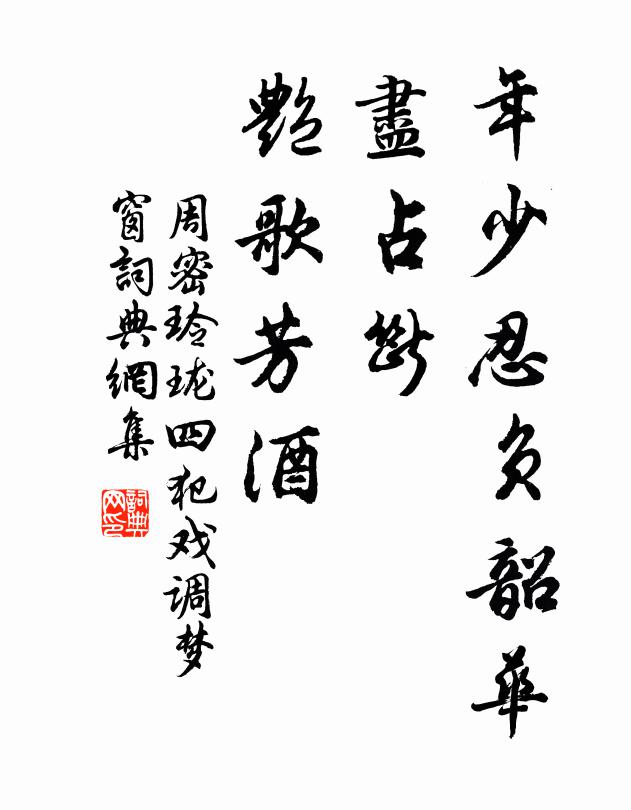 年少忍负韶華
盡占斷
艷歌芳酒
周密玲珑四犯戏调梦
窗詞典網集
詞典
网印